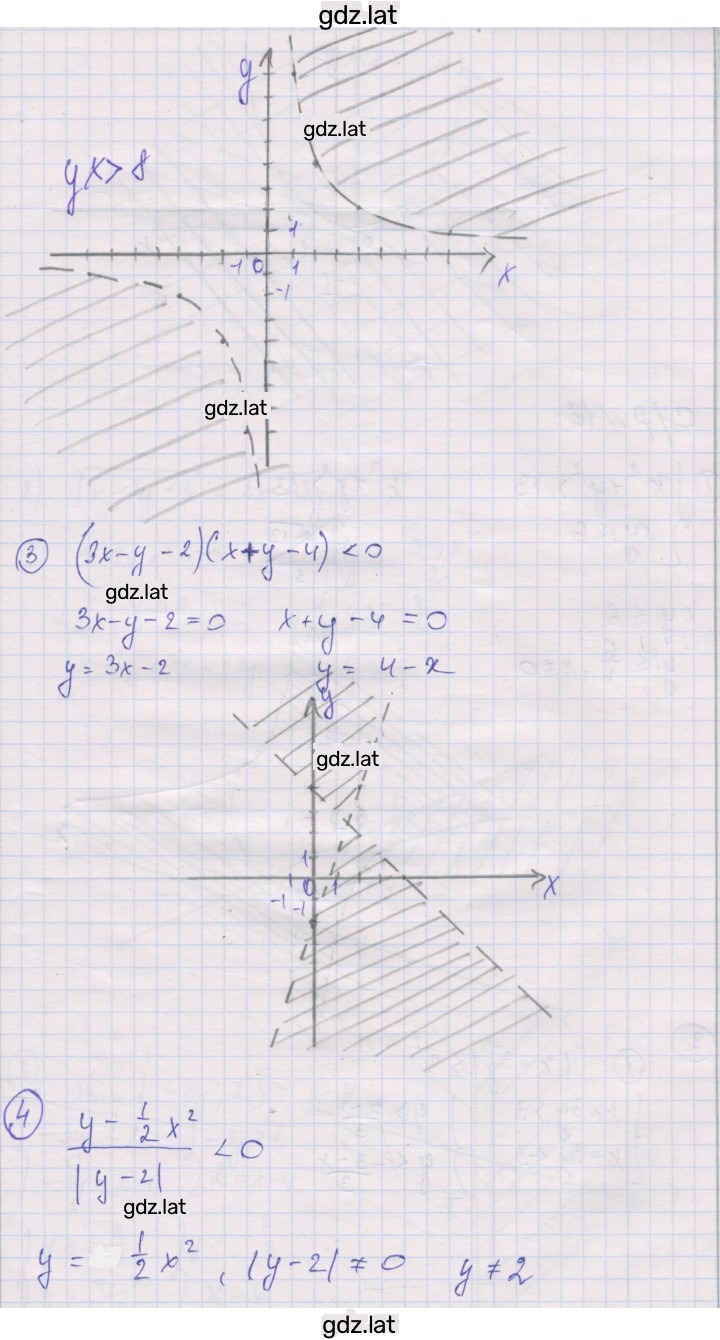 gdz.lat
y
gdz.lat
yx > 8
1
-1 0 1 x
-1
gdz.lat
③ (3x-y-2)(x+y-4) < 0
gdz.lat
3x-y-2=0 x+y-4=0
y=3x-2 y=4-x
y
gdz.lat
1
-1 0 1 x
-1
④ (y - 1/2 x²)/|y-2| < 0
gdz.lat
y = 1/2 x², |y-2| ≠ 0 y ≠ 2
gdz.lat